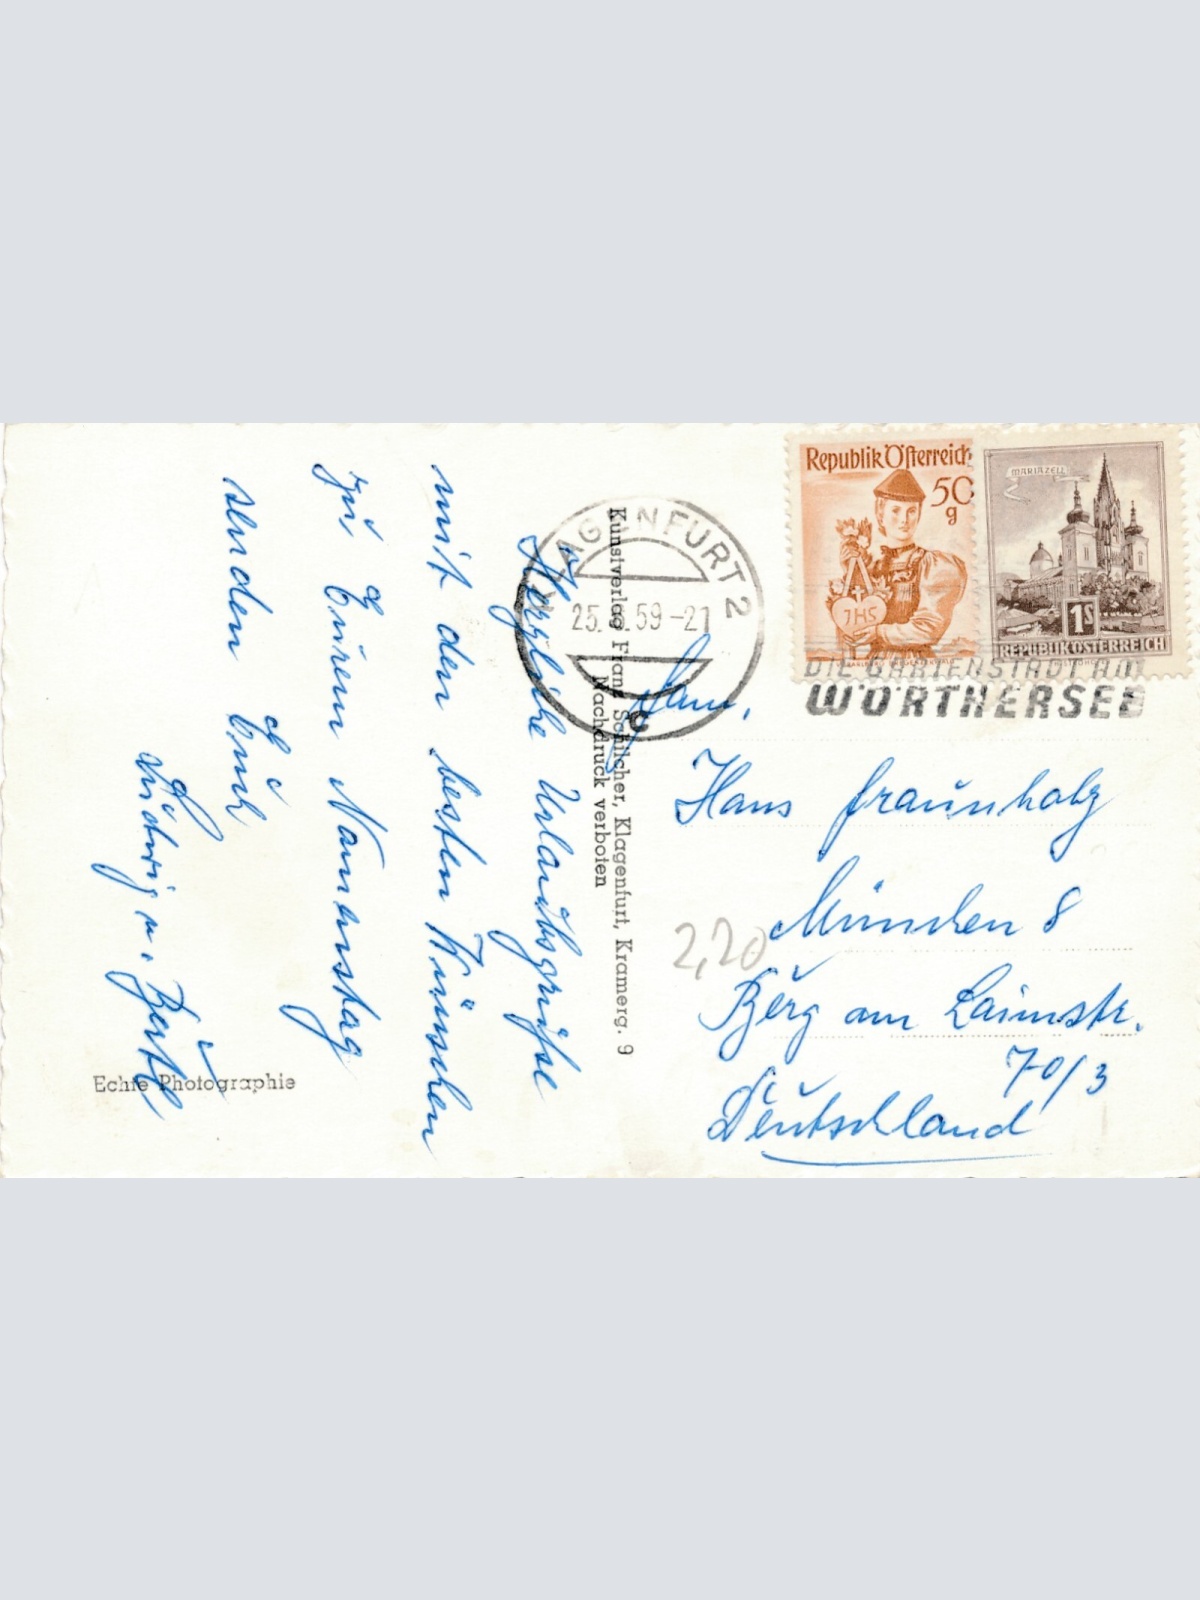 Herzliche Urlaubsgrüße
mit den besten Wünschen
zu Eurem Namenstag
senden Euch
Ludwig u.
Kunstverlag Franz Schilcher, Klagenfurt, Kramerg. 9
Nachdruck verboten
Echte Photographie
KLAGENFURT 2
25. 59-21
c
Republik Österreich
50
g
JHS
MARIAZELL
1S
REPUBLIK ÖSTERREICH
DIE GARTENSTADT AM
WÖRTHERSEE
Fam.
Hans Fraunholz
München 8
2,20
Berg am Laimstr.
70/3
Deutschland